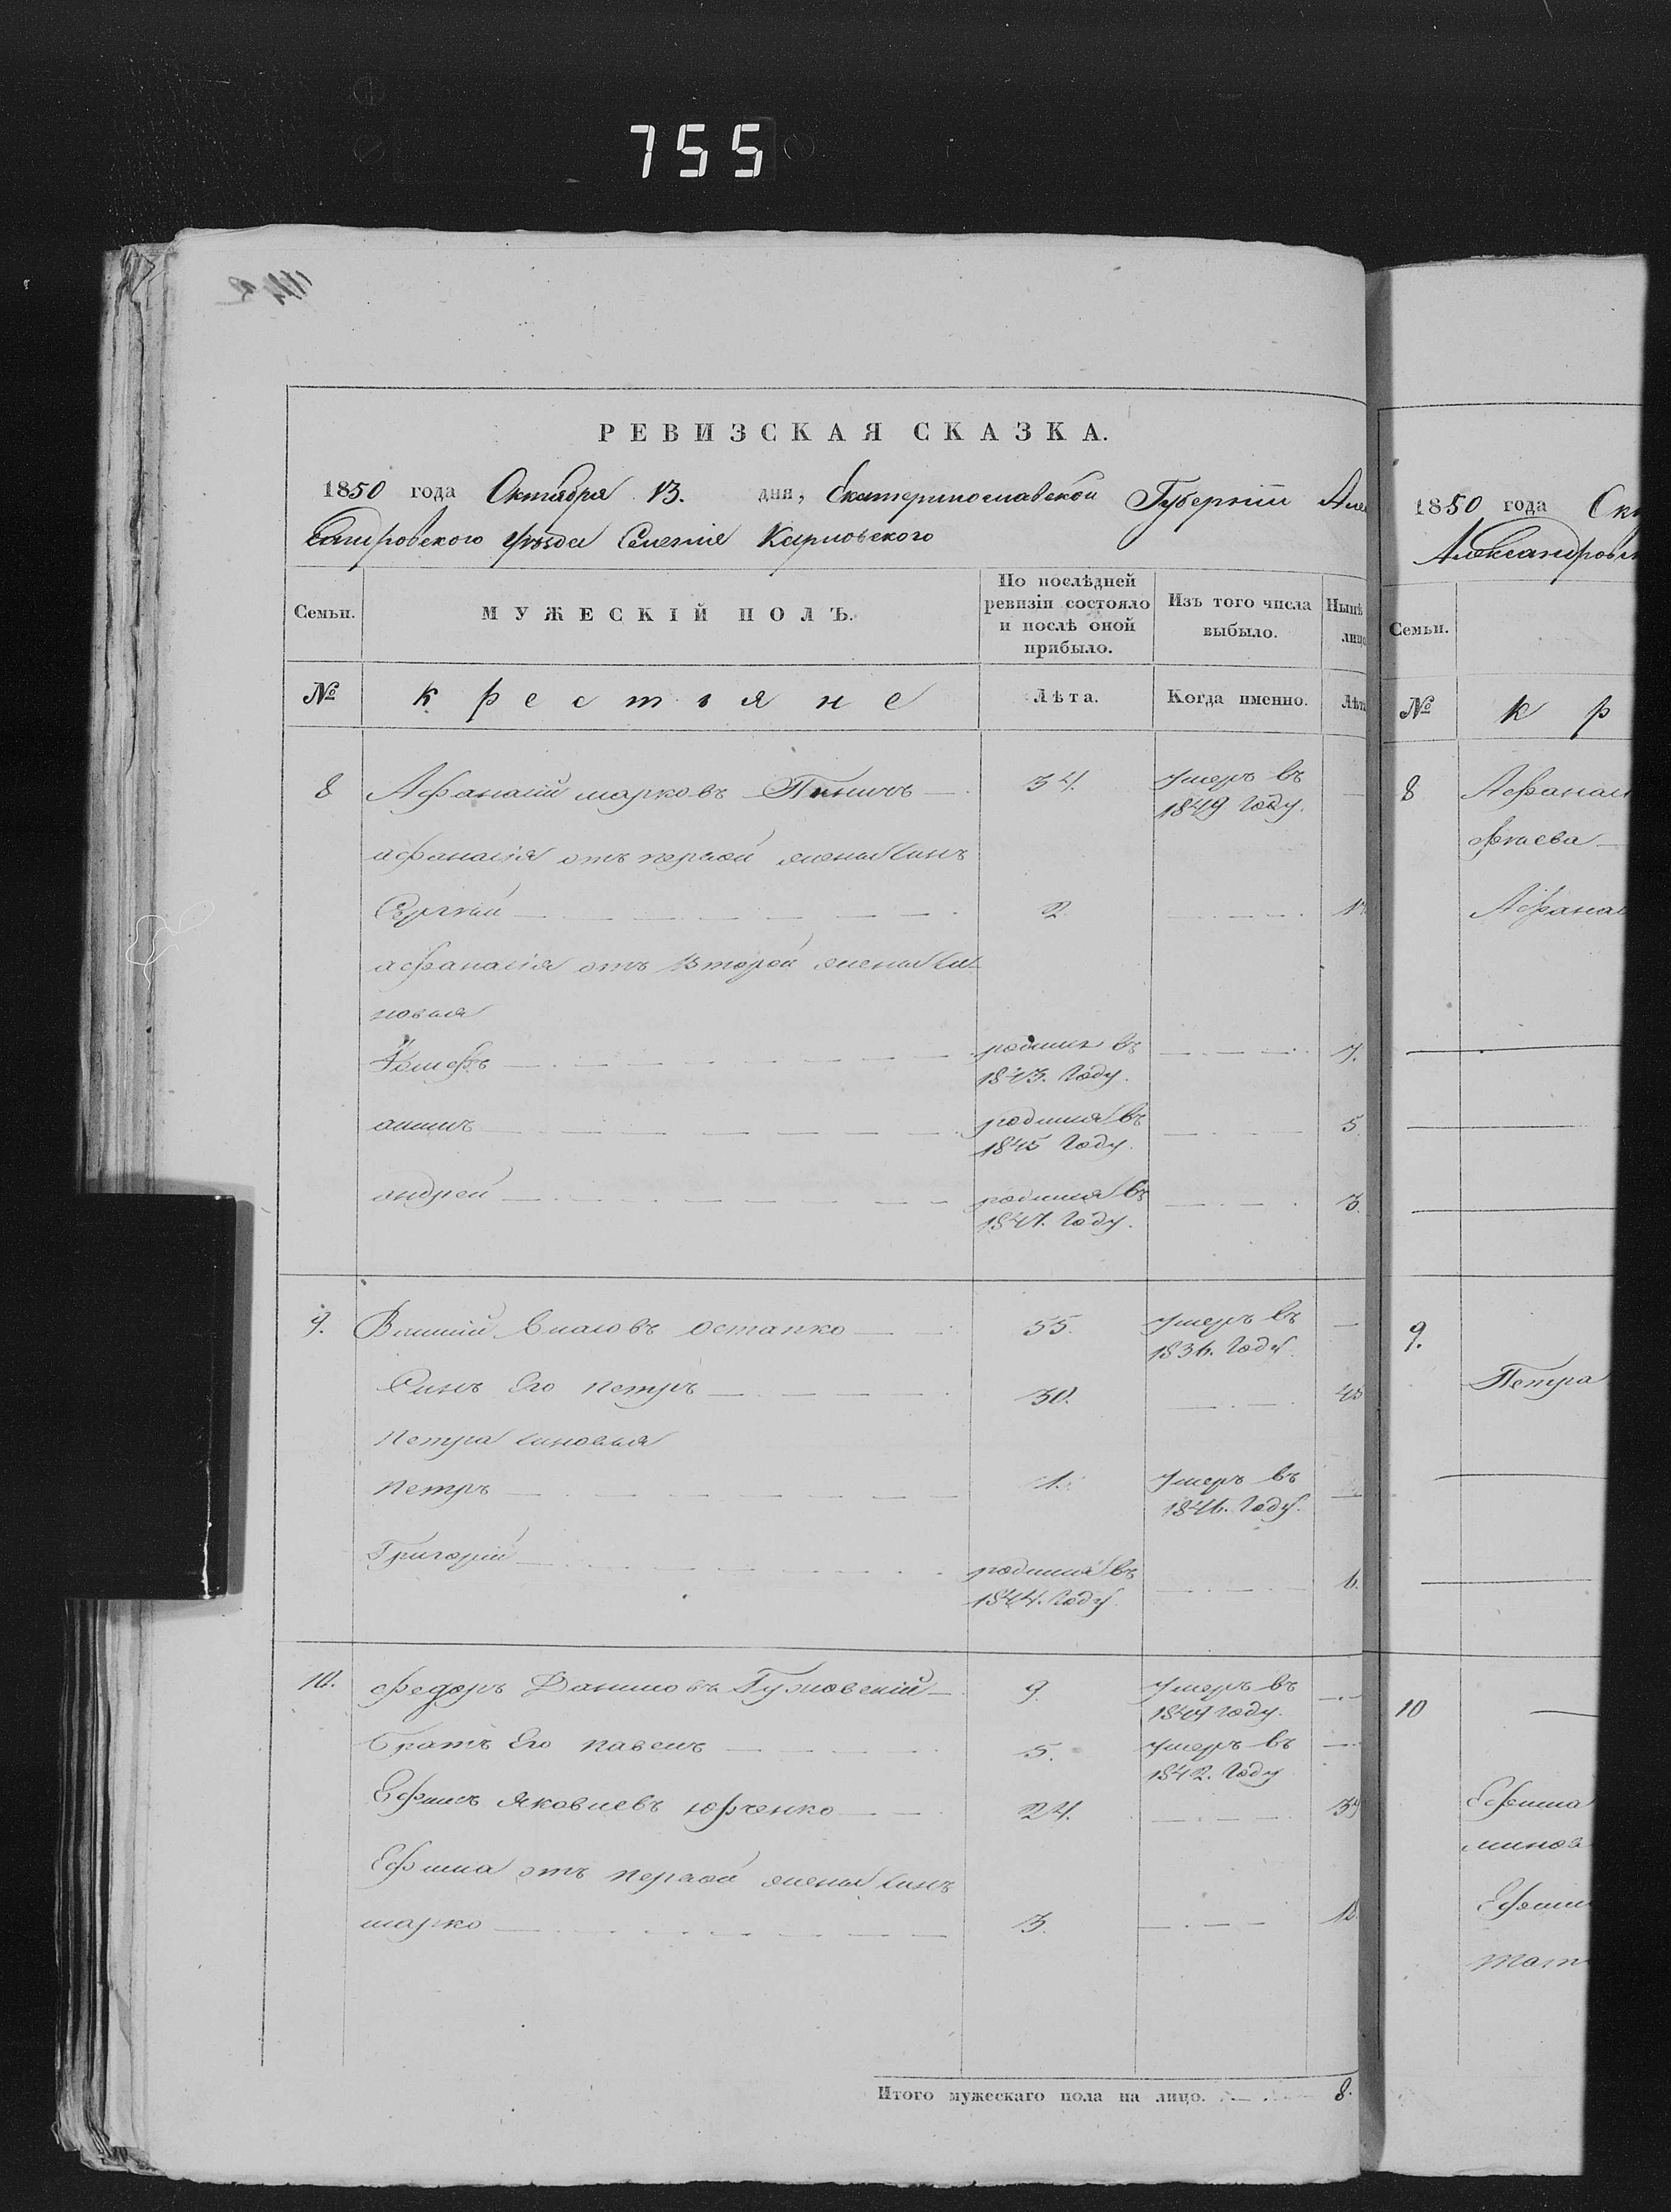 755
РЕВИЗСКАЯ СКАЗКА.
1850 года Октября 13. дня, Екатеринославской Губерніи Алек
сандровского уѣзда Селенія Карповского
Семьи. МУЖЕСКІЙ ПОЛЪ. По послѣдней ревизіи состояло и послѣ оной прибыло. Изъ того числа выбыло. Нынѣ лицо
№ крестіяне Лѣта. Когда именно. Лѣта
8 Афанасій марковъ 34. умеръ въ
1849 году.
афанасія отъ первой жены Синъ
Сергѣй 2
афанасія отъ второй жены си
новья
Іосифъ родился въ 7.
1843. году.
родился въ 5.
1845 году.
андрей родился въ 3.
1847. году.
9. Василій Власовъ Остапко 55. умеръ въ
1836. году.
Синъ Его петръ 30. 45
петра синовья
петръ 1. умеръ въ
1846. году.
Григорій родился въ 6.
1844. году.
10. федоръ Даниловъ 9. умеръ въ
году.
Братъ Его павелъ 5. умеръ въ
1842. году
Ефимъ яковлевъ юрченко 24. 39
Ефима отъ первой жены Синъ
марко 3. 18.
Итого мужескаго пола на лицо. 8.
1850 года Ок
Александровск
Семьи.
№ к р
8 Афанас
Афанас
9.
Петра
10
Ефима
Ефим